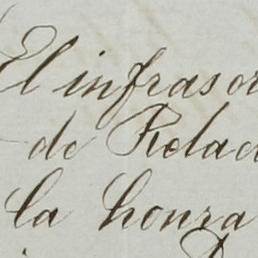 El infrasc
de Relac
la honra